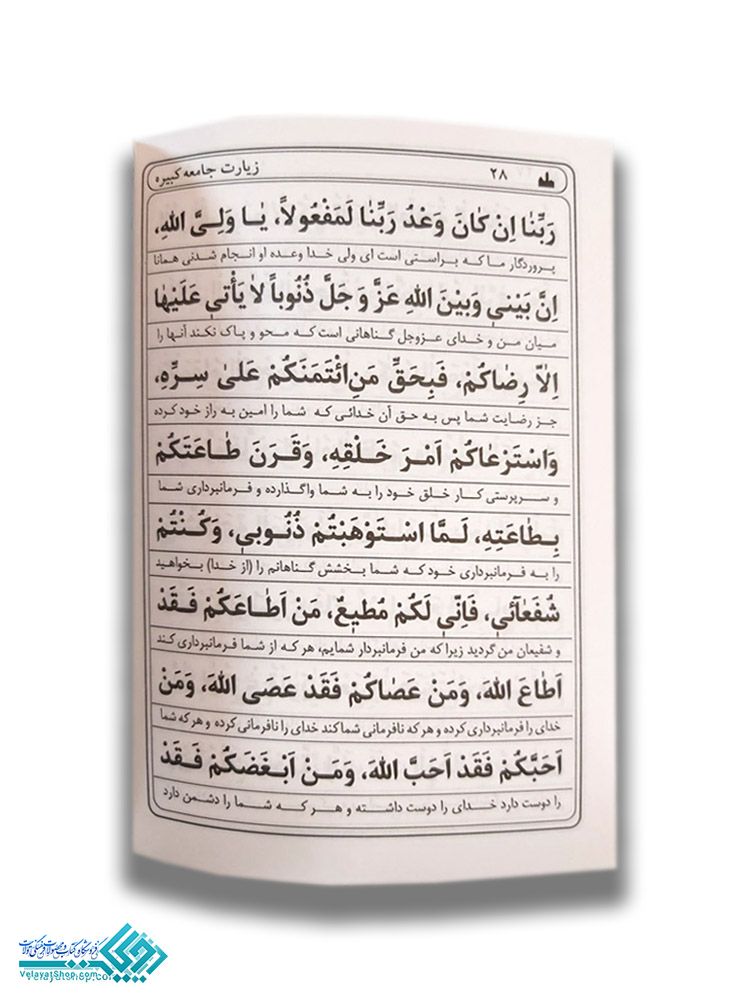 زیارت جامعه کبیره ۲۸
رَبِّنٰا اِنْ كٰانَ وَعْدُ رَبِّنٰا لَمَفْعُولاً، يٰا وَلِىَّ اللهِ،
پروردگار ما که براستی است ای ولی خدا وعده او انجام شدنی همانا
اِنَّ بَيْنى وَبَيْنَ اللهِ عَزَّ وَ جَلَّ ذُنُوباً لاٰ يَأْتى عَلَيْهٰا
میان من و خدای عزوجل گناهانی است که محو و پاک نکند آنها را
اِلاّٰ رِضٰاكُمْ، فَبِحَقِّ مَنِ ائْتَمَنَكُمْ عَلىٰ سِرِّهِ،
جز رضایت شما پس به حق آن خدائی که شما را امین به راز خود کرده
وَاسْتَرْعٰاكُمْ اَمْرَ خَلْقِهِ، وَقَرَنَ طٰاعَتَكُمْ
و سرپرستی کار خلق خود را به شما واگذارده و فرمانبرداری شما
بِطٰاعَتِهِ، لَمَّا اسْتَوْهَبْتُمْ ذُنُوبى، وَكُنْتُمْ
را به فرمانبرداری خود که شما بخشش گناهانم را (از خدا) بخواهید
شُفَعٰآئى، فَاِنّى لَكُمْ مُطيعٌ، مَنْ اَطٰاعَكُمْ فَقَدْ
و شفیعان من گردید زیرا که من فرمانبردار شمایم، هر که از شما فرمانبرداری کند
اَطٰاعَ اللهَ، وَمَنْ عَصٰاكُمْ فَقَدْ عَصَى اللهَ، وَمَنْ
خدای را فرمانبرداری کرده و هر که نافرمانی شما کند خدای را نافرمانی کرده و هر که شما
اَحَبَّكُمْ فَقَدْ اَحَبَّ اللهَ، وَمَنْ اَبْغَضَكُمْ فَقَدْ
را دوست دارد خدای را دوست داشته و هر که شما را دشمن دارد
VelayatShop.com